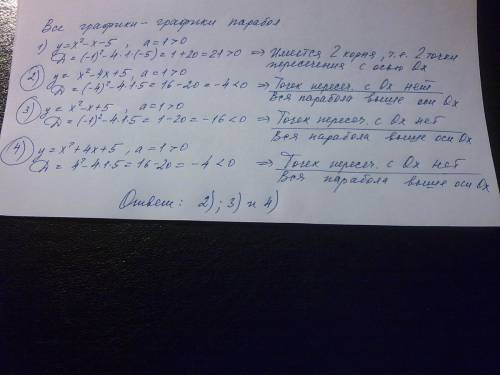 Все графики - графики парабол
1) y = x² - x - 5, a = 1 > 0
D = (-1)² - 4·1·(-5) = 1 + 20 = 21 > 0 ⇒ Имеется 2 корня, т.е. 2 точки
пересечения с осью Ox
2) y = x² - 4x + 5, a = 1 > 0
D = (-4)² - 4·1·5 = 16 - 20 = -4 < 0 ⇒ Точек пересеч. с Ox нет
Вся парабола выше оси Ox
3) y = x² - x + 5, a = 1 > 0
D = (-1)² - 4·1·5 = 1 - 20 = -16 < 0 ⇒ Точек пересеч. с Ox нет
Вся парабола выше оси Ox
4) y = x² + 4x + 5, a = 1 > 0
D = 4² - 4·1·5 = 16 - 20 = -4 < 0 ⇒ Точек пересеч. с Ox нет
Вся парабола выше оси Ox
Ответ: 2); 3) и 4)